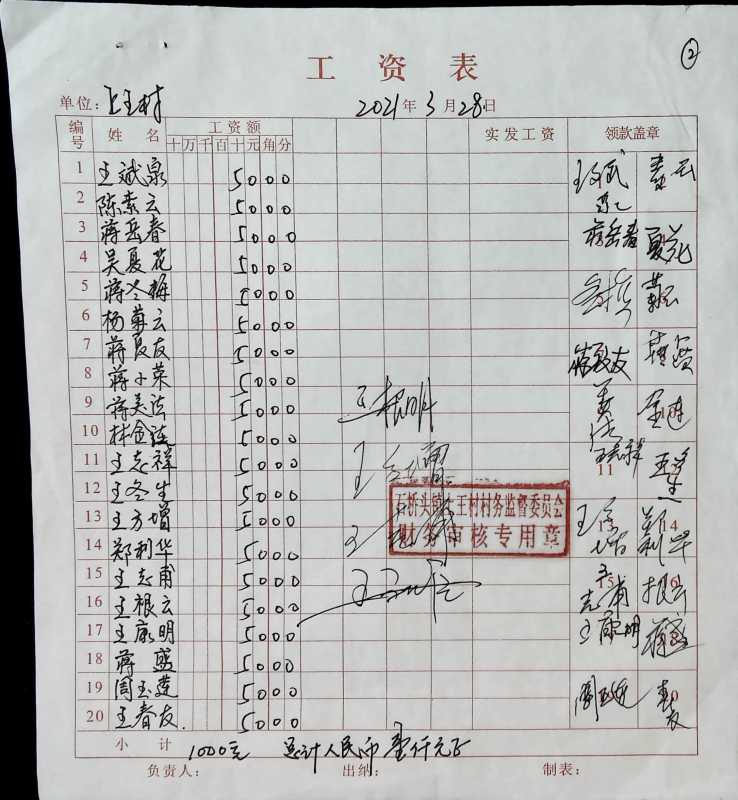 ②
工资表
单位：上王村 2021年3月28日
编号 姓名 工资额 实发工资 领款盖章
十万千百十元角分
1 王斌泉 5000 王斌 素云
2 陈素云 5000
3 蒋岳春 5000 蒋岳春 夏花
4 吴夏花 5000
5 蒋冬梅 5000
6 杨菊云 5000
7 蒋夏友 5000 蒋夏友
8 蒋小荣 5000
9 蒋美法 5000 美法 金莲
10 林金莲 5000
11 王志祥 5000 王志祥 11
12 王冬生 5000
13 王方增 5000 13 郑利华 14
14 郑利华 5000
15 王志甫 5000 王志甫 15 根云 16
16 王根云 5000
17 王康明 5000 王康明 蒋盛
18 蒋盛 5000
19 周玉莲 5000 周玉莲 春友
20 王春友 5000
王根明
石桥头镇上王村村务监督委员会
财务审核专用章
小计 1000元 总计人民币壹仟元正
负责人： 出纳： 制表：